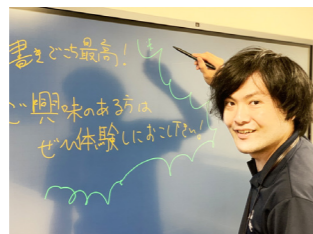 書きごこち最高!
ご興味のある方は
ぜひ体験しにおこし下さい!